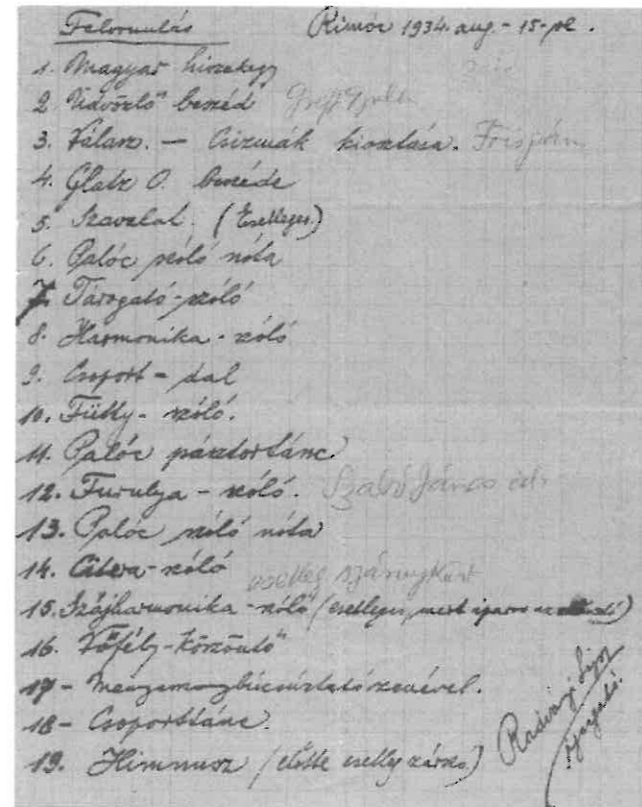 Felvonulás Rimóc 1934. aug. - 15-re.
1. Magyar hiszekegy
2. Üdvözlő beszéd
3. Válasz. — Csizmák kiosztása.
4. Glatz O. beszéde
5. Szavalat. (Esetleges)
6. Palóc szóló nóta
7. Tárogató-szóló
8. Harmonika - szóló
9. Csoport - dal
10. Fütty - szóló.
11. Palóc pásztortánc.
12. Furulya - szóló. Szabó János
13. Palóc szóló nóta
14. Citera - szóló
esetleg
15. Szájharmonika - szóló (esetleges, mert iparos
16. Vőfély-köszöntő
17 - Menyasszonybúcsúztató zenével.
18 - Csoporttánc.
19. Himnusz (előtte